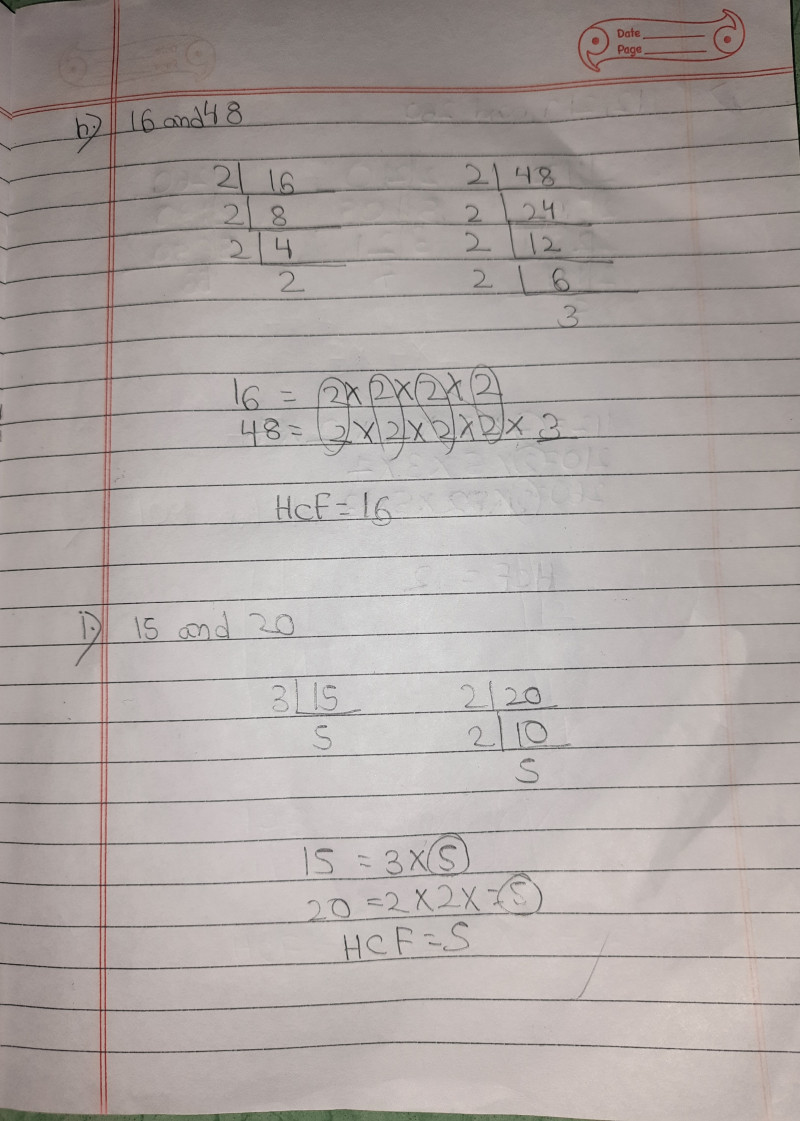 Date
Page
h.) 16 and 48
2 | 16 2 | 48
2 | 8 2 | 24
2 | 4 2 | 12
2 2 | 6
3
16 = 2 × 2 × 2 × 2
48 = 2 × 2 × 2 × 2 × 3
HCF = 16
i.) 15 and 20
3 | 15 2 | 20
5 2 | 10
5
15 = 3 × 5
20 = 2 × 2 × 5
HCF = 5